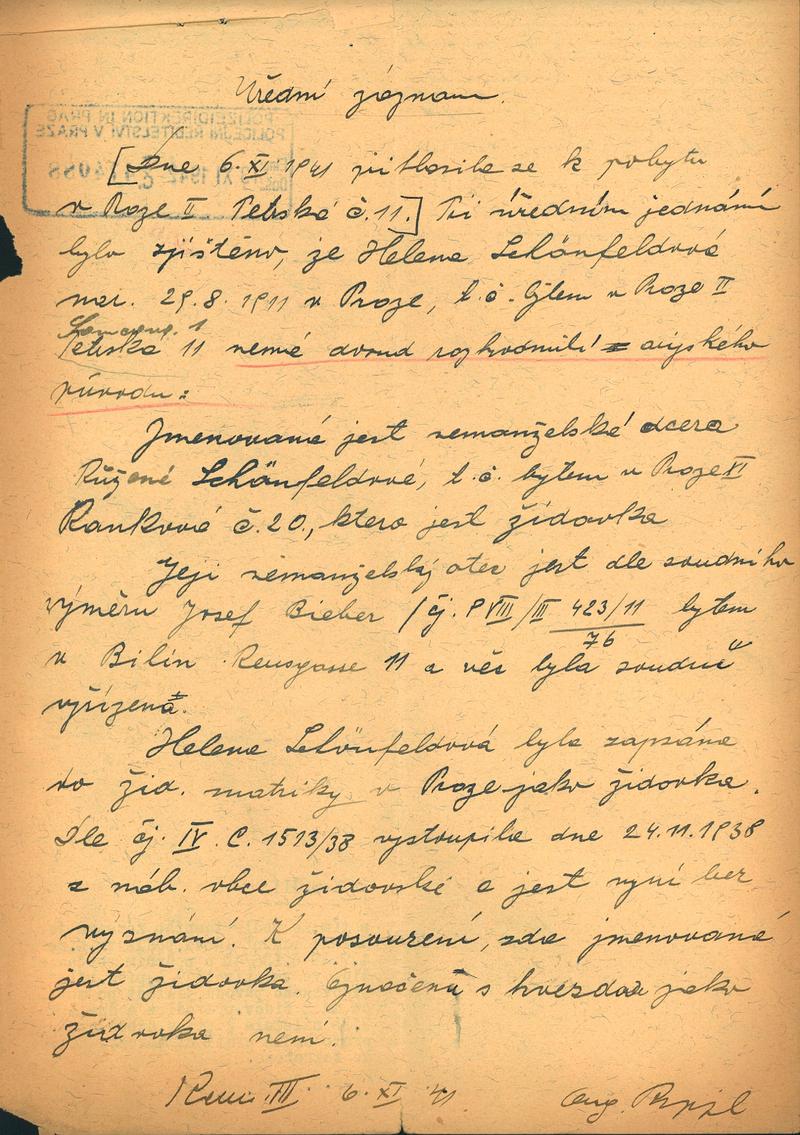 Úřední záznam.
[Dne 6. XI 1941 přihlásila se k pobytu
v Praze II Petrská č. 11.] Při úředním jednání
bylo zjištěno, že Helena Schönfeldová
nar. 29.8.1911 v Praze, t. č. bytem v Praze II
Petrská 11 nemá dosud rozhodnutí z arijského
původu:
Jmenovaná jest nemanželská dcera
Růženy Schönfeldové, t. č. bytem v Praze XI
č. 20., která jest židovka
Její nemanželský otec jest dle soudního
výměru Josef Bieber /čj. P VIII/III 423/11 bytem
76
v Bilin 11 a věc byla soudně
vyřízena.
Helena Schönfeldová byla zapsána
do žid. matriky v Praze jako židovka.
Dle čj. IV. C. 1513/38 vystoupila dne 24.11.1938
z náb. obce židovské a jest nyní bez
vyznání. K posouzení, zda jmenovaná
jest židovka. Označena s hvězdou jako
židovka není.
III 6. XI 41
POLIZEIDIREKTION IN PRAG
POLICEJNÍ ŘEDITELSTVÍ V PRAZE